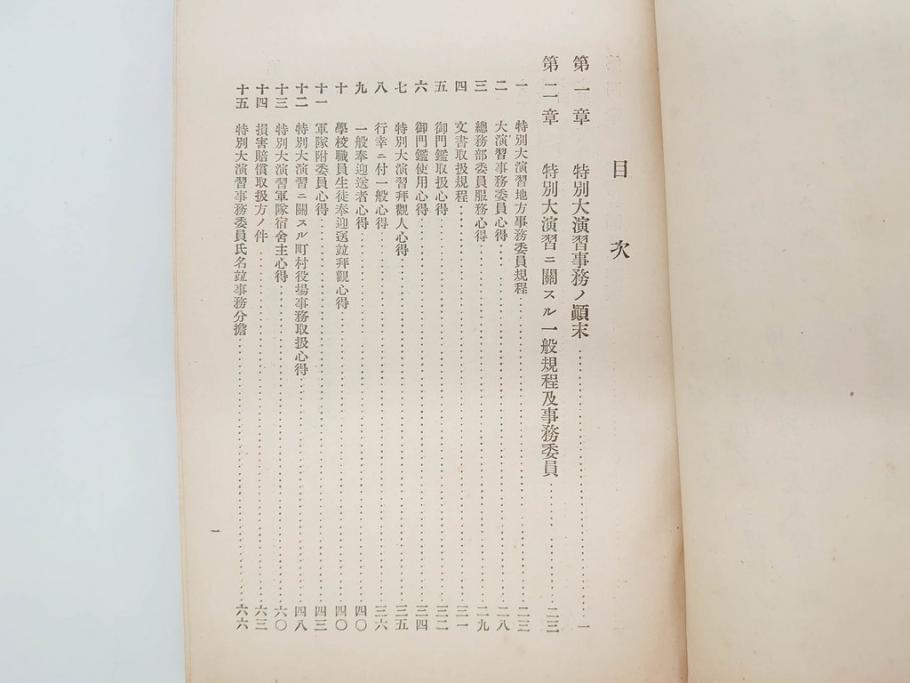 目次
第一章 特別大演習事務ノ顚末……一
第二章 特別大演習ニ關スル一般規程及事務委員……二三
一 特別大演習地方事務委員規程……二三
二 大演習事務委員心得……二八
三 總務部委員服務心得……二九
四 文書取扱規程……三一
五 御門鑑取扱心得……三二
六 御門鑑使用心得……三四
七 特別大演習拜觀人心得……三五
八 行幸ニ付一般心得……三六
九 一般奉迎送者心得……四〇
十 學校職員生徒奉迎送竝拜觀心得……四〇
十一 軍隊附委員心得……四三
十二 特別大演習ニ關スル町村役場事務取扱心得……四八
十三 特別大演習軍隊宿舍主心得……六〇
十四 損害賠償取扱方ノ件……六三
十五 特別大演習事務委員氏名竝事務分擔……六六
一